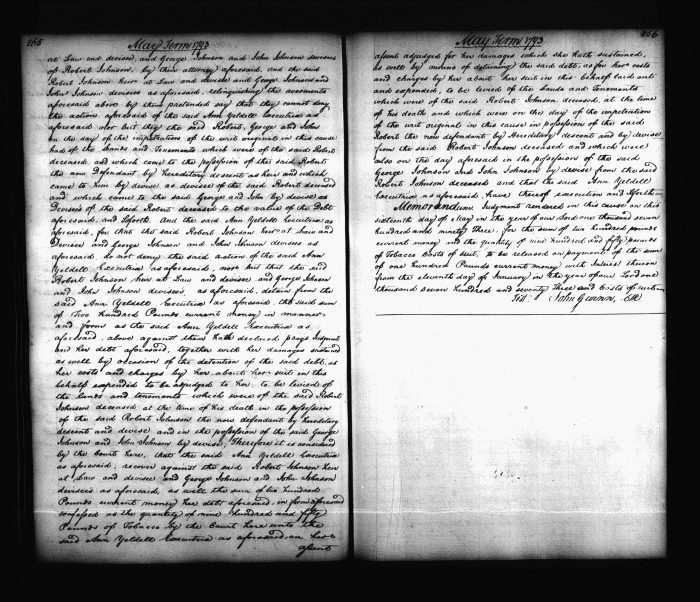 265
May Term 1793
at Law and devisee, and George Johnson and John Johnson devisees
of Robert Johnson, by their attorney aforesaid, and the said
Robert Johnson heir at Law and devisee and George Johnson and
John Johnson devisees as aforesaid, relinquishing the averments
aforesaid above by them pretended say that they cannot deny
the action aforesaid of the said Ann Yeldell Executrix as
aforesaid nor but they the said Robert, George and John
on the day of the impetration of the writ original in this cause
had of the Lands and Tenements which were of the said Robert
deceased, and which came to the possession of the said Robert
the now Defendant by hereditary descent as heir and which
came to him by devise as devisee of the said Robert deceased
and which came to the said George and John by devise as
Devisees of the said Robert deceased to the value of the Debt
aforesaid, and so forth. And the said Ann Yeldell Executrix as
aforesaid, for that the said Robert Johnson heir at Law and
Devisee and George Johnson and John Johnson devisees as
aforesaid, do not deny the said action of the said Ann
Yeldell Executrix as aforesaid, nor but that the said
Robert Johnson heir at Law and devisee and George Johnson
and John Johnson devisees as aforesaid detain from the
said Ann Yeldell Executrix as aforesaid, the said sum
of Two Hundred Pounds current money in manner
and form as the said Ann Yeldell Executrix as
aforesaid, above against them hath declared prays Judgment
and her debt aforesaid, together with her damages sustained
as well by occasion of the detention of the said debt, as
her costs and charges by her about her suit in this
behalf expended to be adjudged to her, to be levied of
the lands and tenements which were of the said Robert
Johnson deceased at the time of his death in the possession
of the said Robert Johnson the now defendant by hereditary
descent and devise and in the possession of the said George
Johnson and John Johnson by devise; Therefore it is considered
by the Court here, that the said Ann Yeldell Executrix
as aforesaid, recover against the said Robert Johnson heir
at Law and devisee and George Johnson and John Johnson
devisees as aforesaid, as well the sum of two hundred
Pounds current money her debt aforesaid, in form aforesaid
confessed as the quantity of nine hundred and fifty
Pounds of Tobacco by the Court here unto the
said Ann Yeldell Executrix as aforesaid, on her
assent
266
May Term 1793
assent adjudged for her damages which she hath sustained,
as well by means of detaining the said debt, as for her costs
and charges by her about her suit in this behalf laid out
and expended, to be levied of the Lands and Tenements
which were of the said Robert Johnson deceased, at the time
of his death and which on the day of the impetration
of the writ original in this cause in possession of the said
Robert the now defendant by Hereditary descent and by devise
from the said Robert Johnson deceased and which were
also on the day aforesaid in the possession of the said
George Johnson and John Johnson by devise from the said
Robert Johnson deceased and that the said Ann Yeldell
Executrix as aforesaid, have thereof execution and so forth
Memorandum Judgment rendered in this cause on this
sixteenth day of May in the year of our Lord one thousand seven
hundred and ninety Three, for the sum of two hundred pounds
current money and the quantity of nine hundred and fifty pounds
of Tobacco Costs of suit, to be released on payment of the sum
of one hundred Pounds current money with Interest thereon
from the eleventh day of January in the year of our Lord one
thousand seven hundred and seventy Three and Costs of suit
Test. John Gwinn, Clk